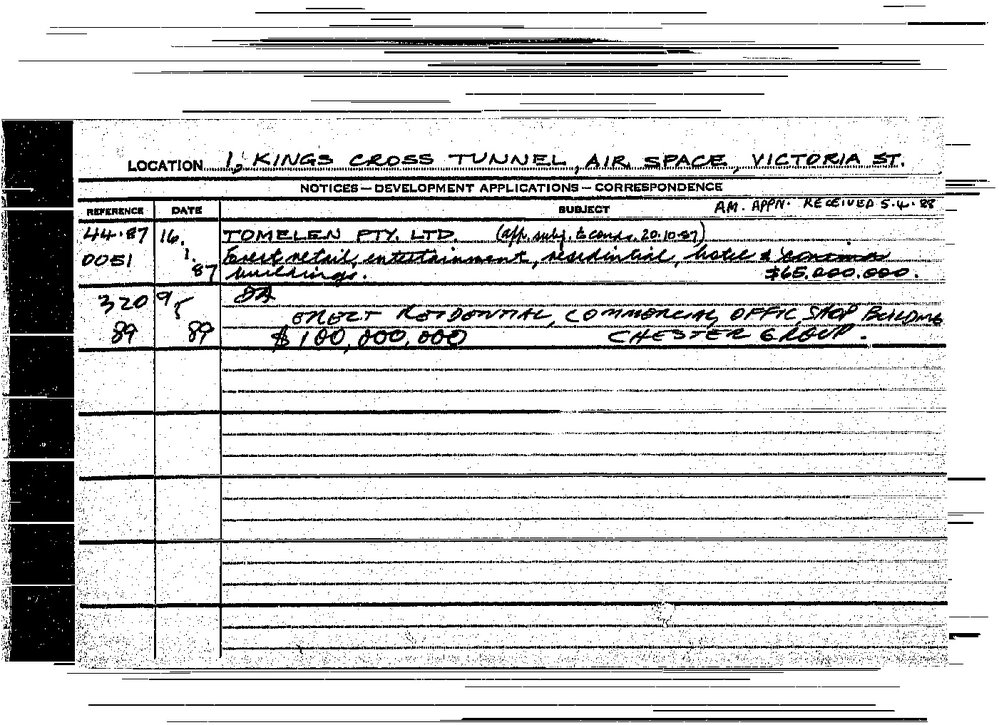 LOCATION 1, KINGS CROSS TUNNEL, AIR SPACE, VICTORIA ST.
NOTICES — DEVELOPMENT APPLICATIONS — CORRESPONDENCE
REFERENCE DATE SUBJECT AM. APPN. RECEIVED 5.4.88
44.87 16. TOMELEN PTY. LTD. (app. subj. to conds. 20.10.87)
0051 1. Erect retail, entertainment, residential, hotel &
87 buildings. $65,000.000.
320 9 DA
5 ERECT RESIDENTIAL, COMMERCIAL, OFFIC SHOP BUILDING
89 89 $100,000,000 CHESTER GROUP.